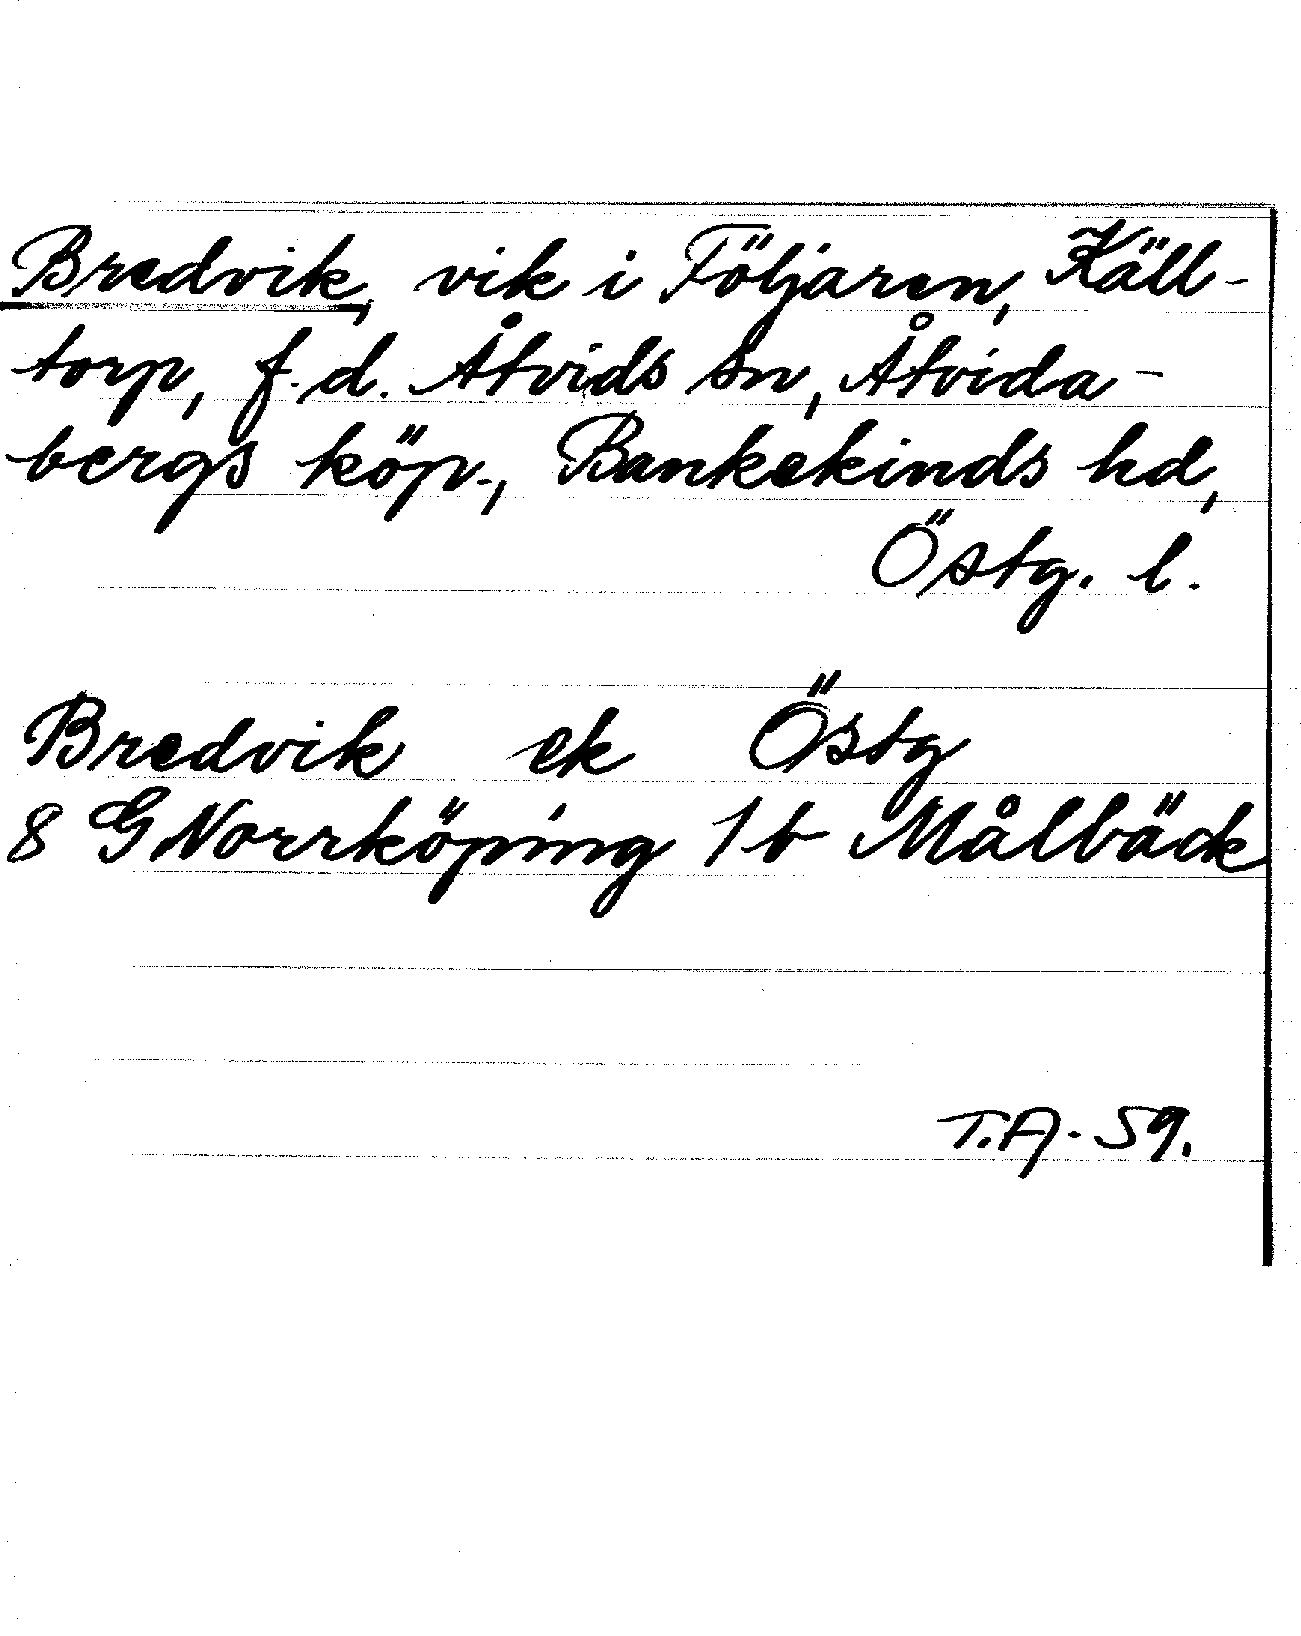 Bredvik, vik i Följaren, Käll-
torp, f.d. Åtvids sn, Åtvida-
bergs köp., Bankekinds hd,
Östg. l.
Bredvik ek Östg
8 G Norrköping 1 b Målbäck
T.A. 59.